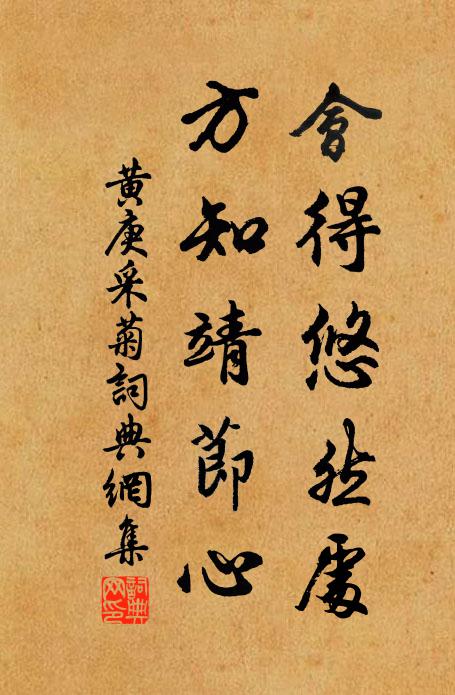 會得悠然處
方知靖節心
黃庚采菊詞典網集
詞典网印